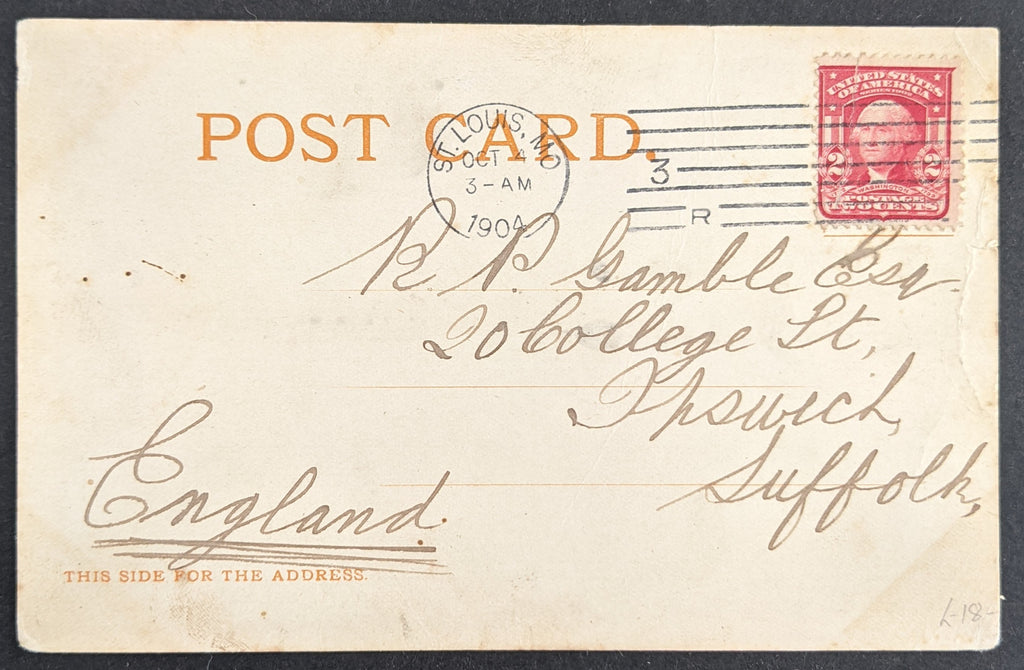 POST CARD.
ST. LOUIS, MO
OCT 4
3-AM
1904
3
R
UNITED STATES
OF AMERICA
SERIES 1902
2 2
WASHINGTON
CENTS
R. P. Gamble Esq.
20 College St,
Ipswich,
Suffolk,
England.
THIS SIDE FOR THE ADDRESS.
L-18-